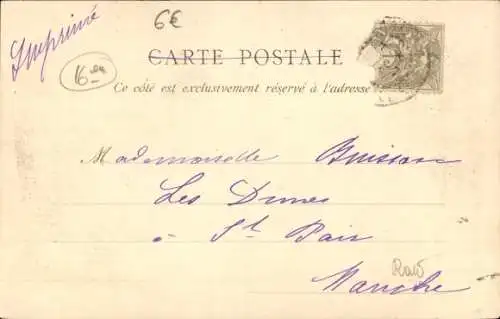 Imprimé
6€
CARTE POSTALE
Ce côté est exclusivement réservé à l'adresse
Mademoiselle Buisson
Les Dunes
à St Pair
Manche